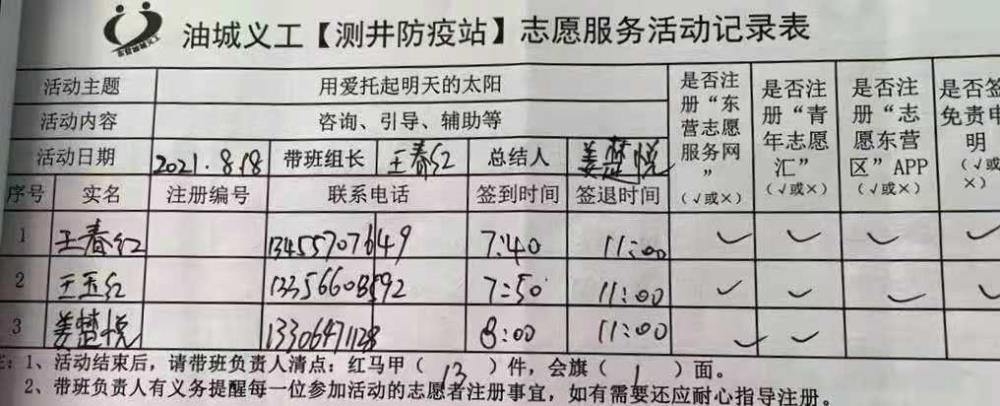 油城义工【测井防疫站】志愿服务活动记录表
东营油城义工
活动主题 用爱托起明天的太阳 是否注册“东营志愿服务网” (√或×) 是否注册“青年志愿汇” (√或×) 是否注册“志愿东营区”APP (√或×) 是否签免责申明 (√或×)
活动内容 咨询、引导、辅助等
活动日期 2021.8.18 带班组长 王春红 总结人 姜楚悦
序号 实名 注册编号 联系电话 签到时间 签退时间
1 王春红 13455707649 7:40 11:00 ✓ ✓ ✓ ✓
2 王玉红 13356608592 7:50 11:00 ✓ ✓ ✓ ✓
3 姜楚悦 13306471128 8:00 11:00 ✓ ✓
注：1、活动结束后，请带班负责人清点：红马甲（ 13 ）件，会旗（ 1 ）面。
2、带班负责人有义务提醒每一位参加活动的志愿者注册事宜，如有需要还应耐心指导注册。